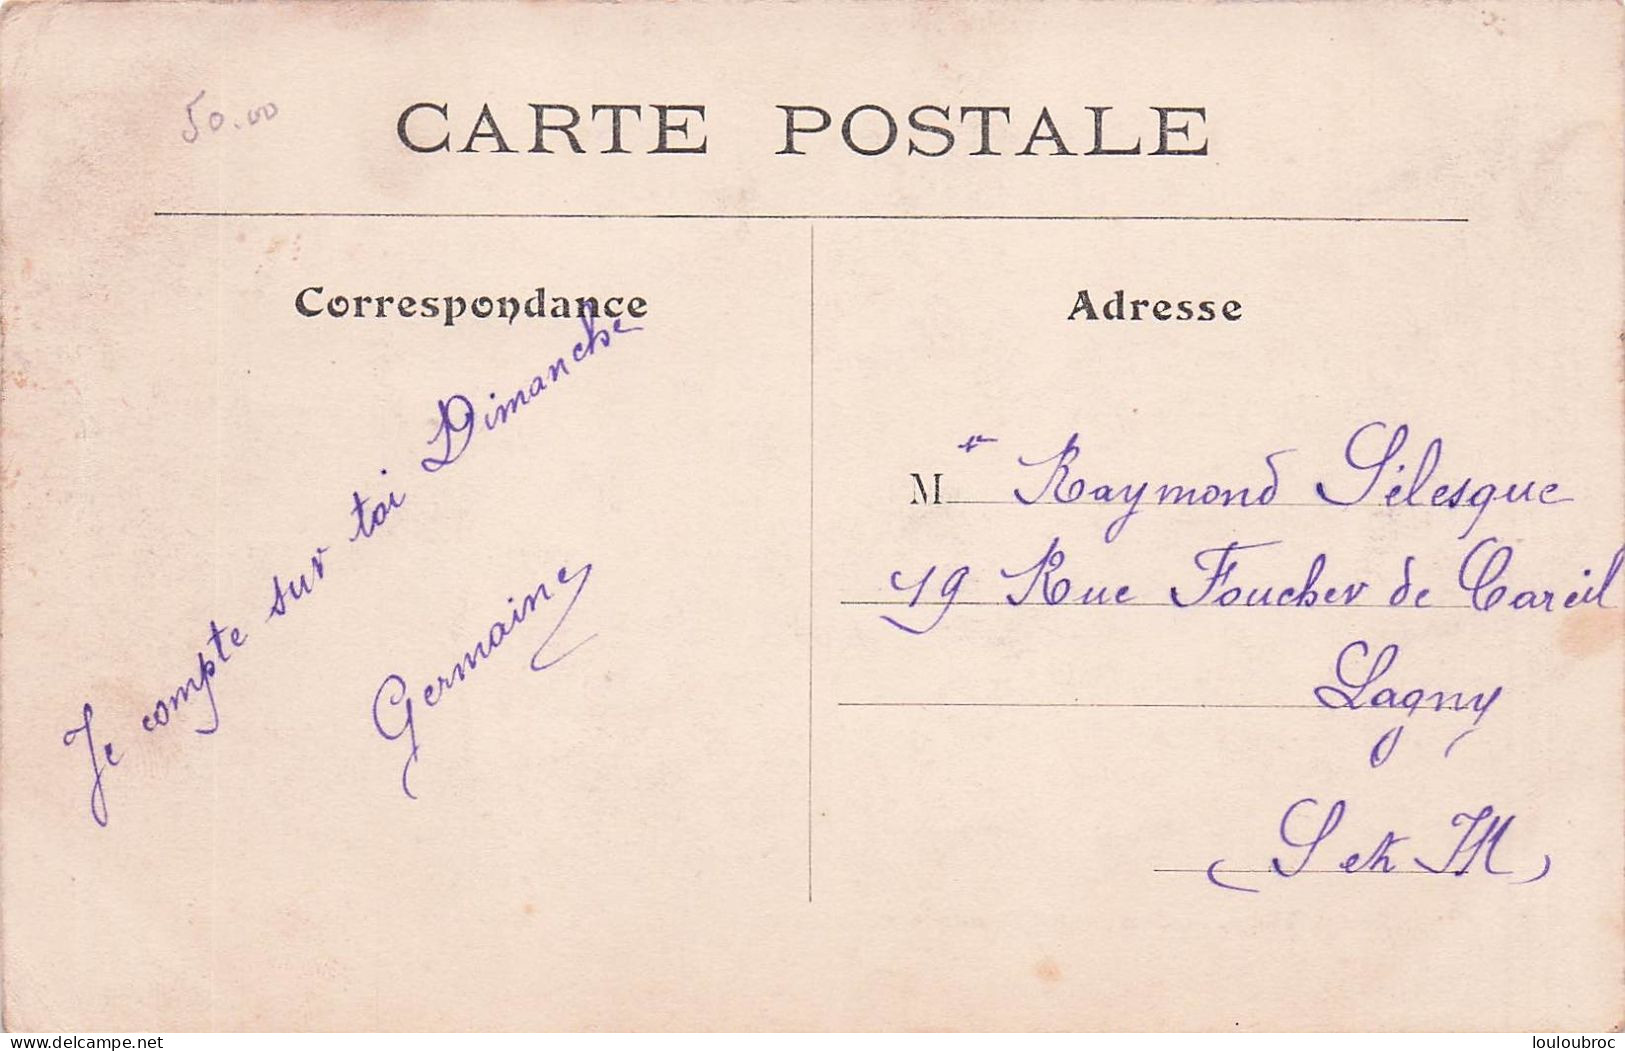 50.00
CARTE POSTALE
Correspondance
Je compte sur toi Dimanche
Germaine
Adresse
M r Raymond Sélesque
19 Rue Foucher de Careil
Lagny
(S et M)
delcampe.net
louloubroc